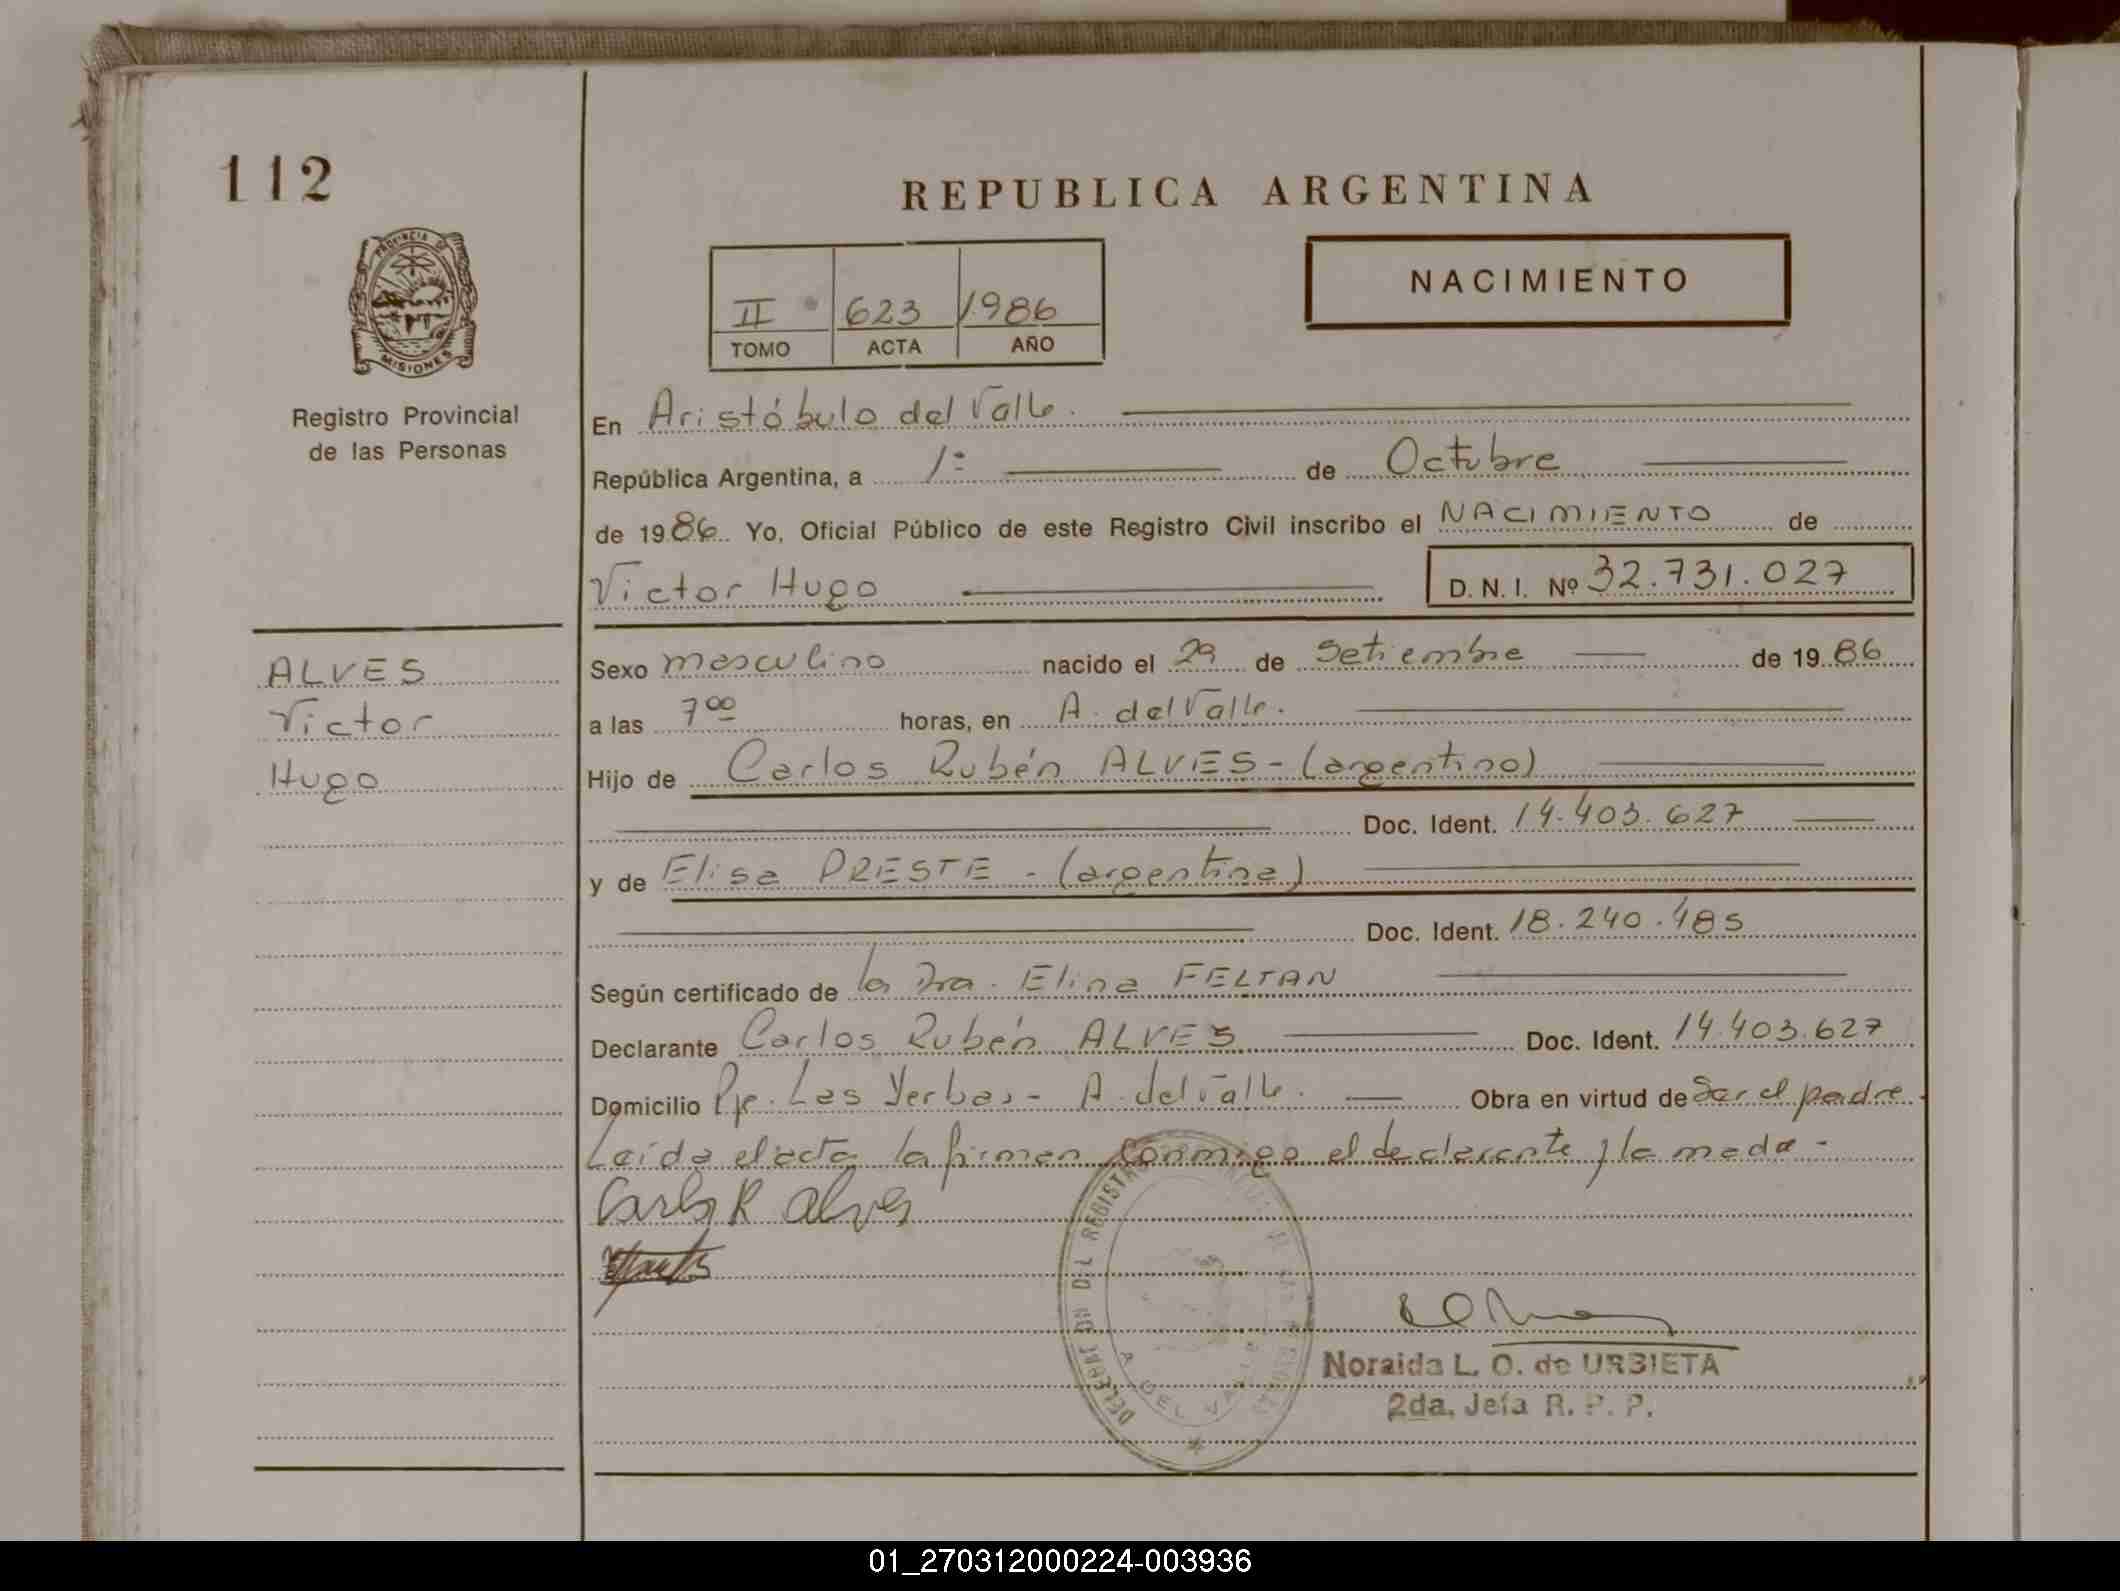 112
REPUBLICA ARGENTINA
PROVINCIA DE
MISIONES
NACIMIENTO
II 623 1986
TOMO ACTA AÑO
Registro Provincial
de las Personas
En Aristóbulo del Valle.
República Argentina, a 1º de Octubre
de 1986. Yo, Oficial Público de este Registro Civil inscribo el NACIMIENTO de
Victor Hugo D. N. I. Nº 32.731.027
ALVES
Victor
Hugo
Sexo masculino nacido el 29 de Setiembre de 1986
a las 7 00 horas, en A. del Valle.
Hijo de Carlos Rubén ALVES - (argentino)
Doc. Ident. 14.403.627
y de Elisa PRESTE - (argentina)
Doc. Ident. 18.240.485
Según certificado de la Dra. Elina FELTAN
Declarante Carlos Rubén ALVES Doc. Ident. 14.403.627
Domicilio Pje. Las Yerbas - A. del Valle. Obra en virtud de ser el padre.
Leída el acta la firman conmigo el declarante y la madre -
Carlos R Alves
DEL REGISTRO
A. DEL VALLE
Noraida L. O. de URBIETA
2da. Jefa R. P. P.
01_270312000224-003936